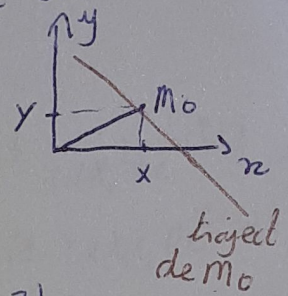 y
M₀
Y
x
X
traject
de M₀